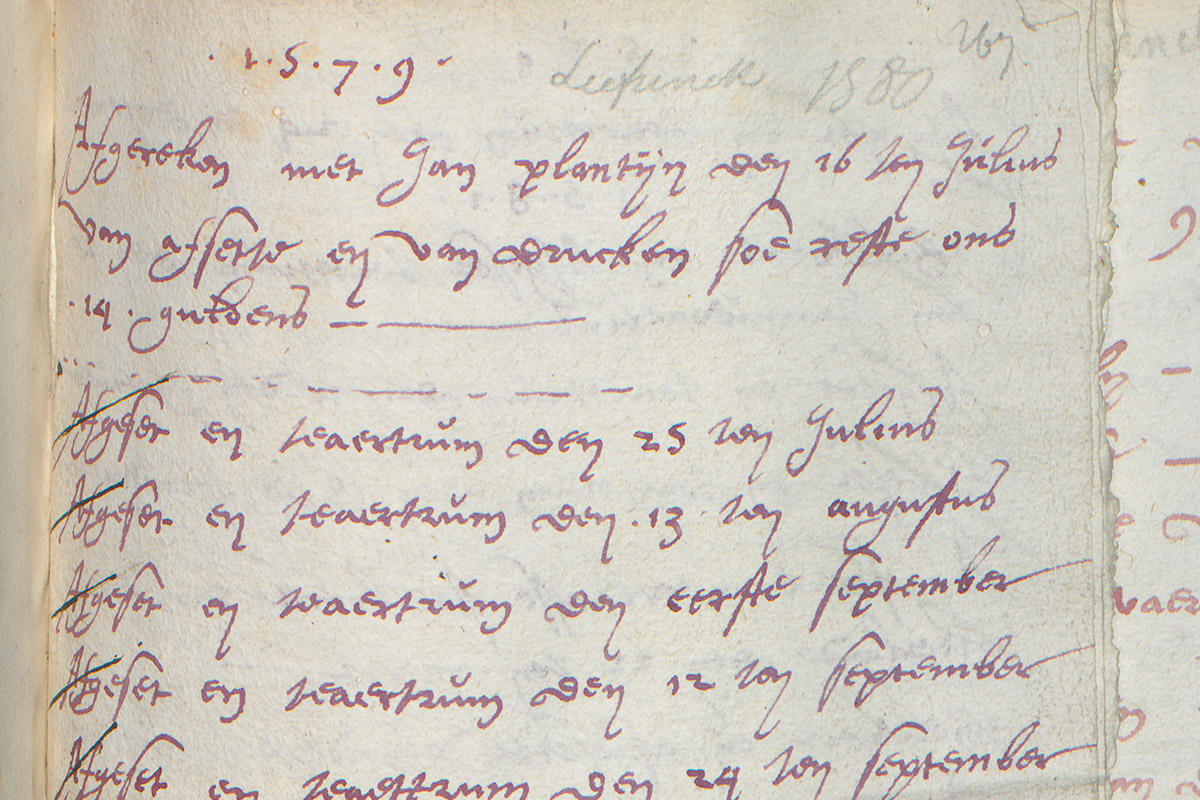 . 1 . 5 . 7 . 9 .
Liefrinck 1580
167
Afgereken met Jan plantijn den 16 ten Julius
van afsette en van drucken soe reste ons
. 14 . guldens
Afgeset en teaertrum den 25 ten Julius
Afgeset en teaertrum den . 13 ten augustus
Afgeset en teaertrum den eerste september
Afgeset en teaertrum den 12 ten september
Afgeset en teaettrum den 24 ten september